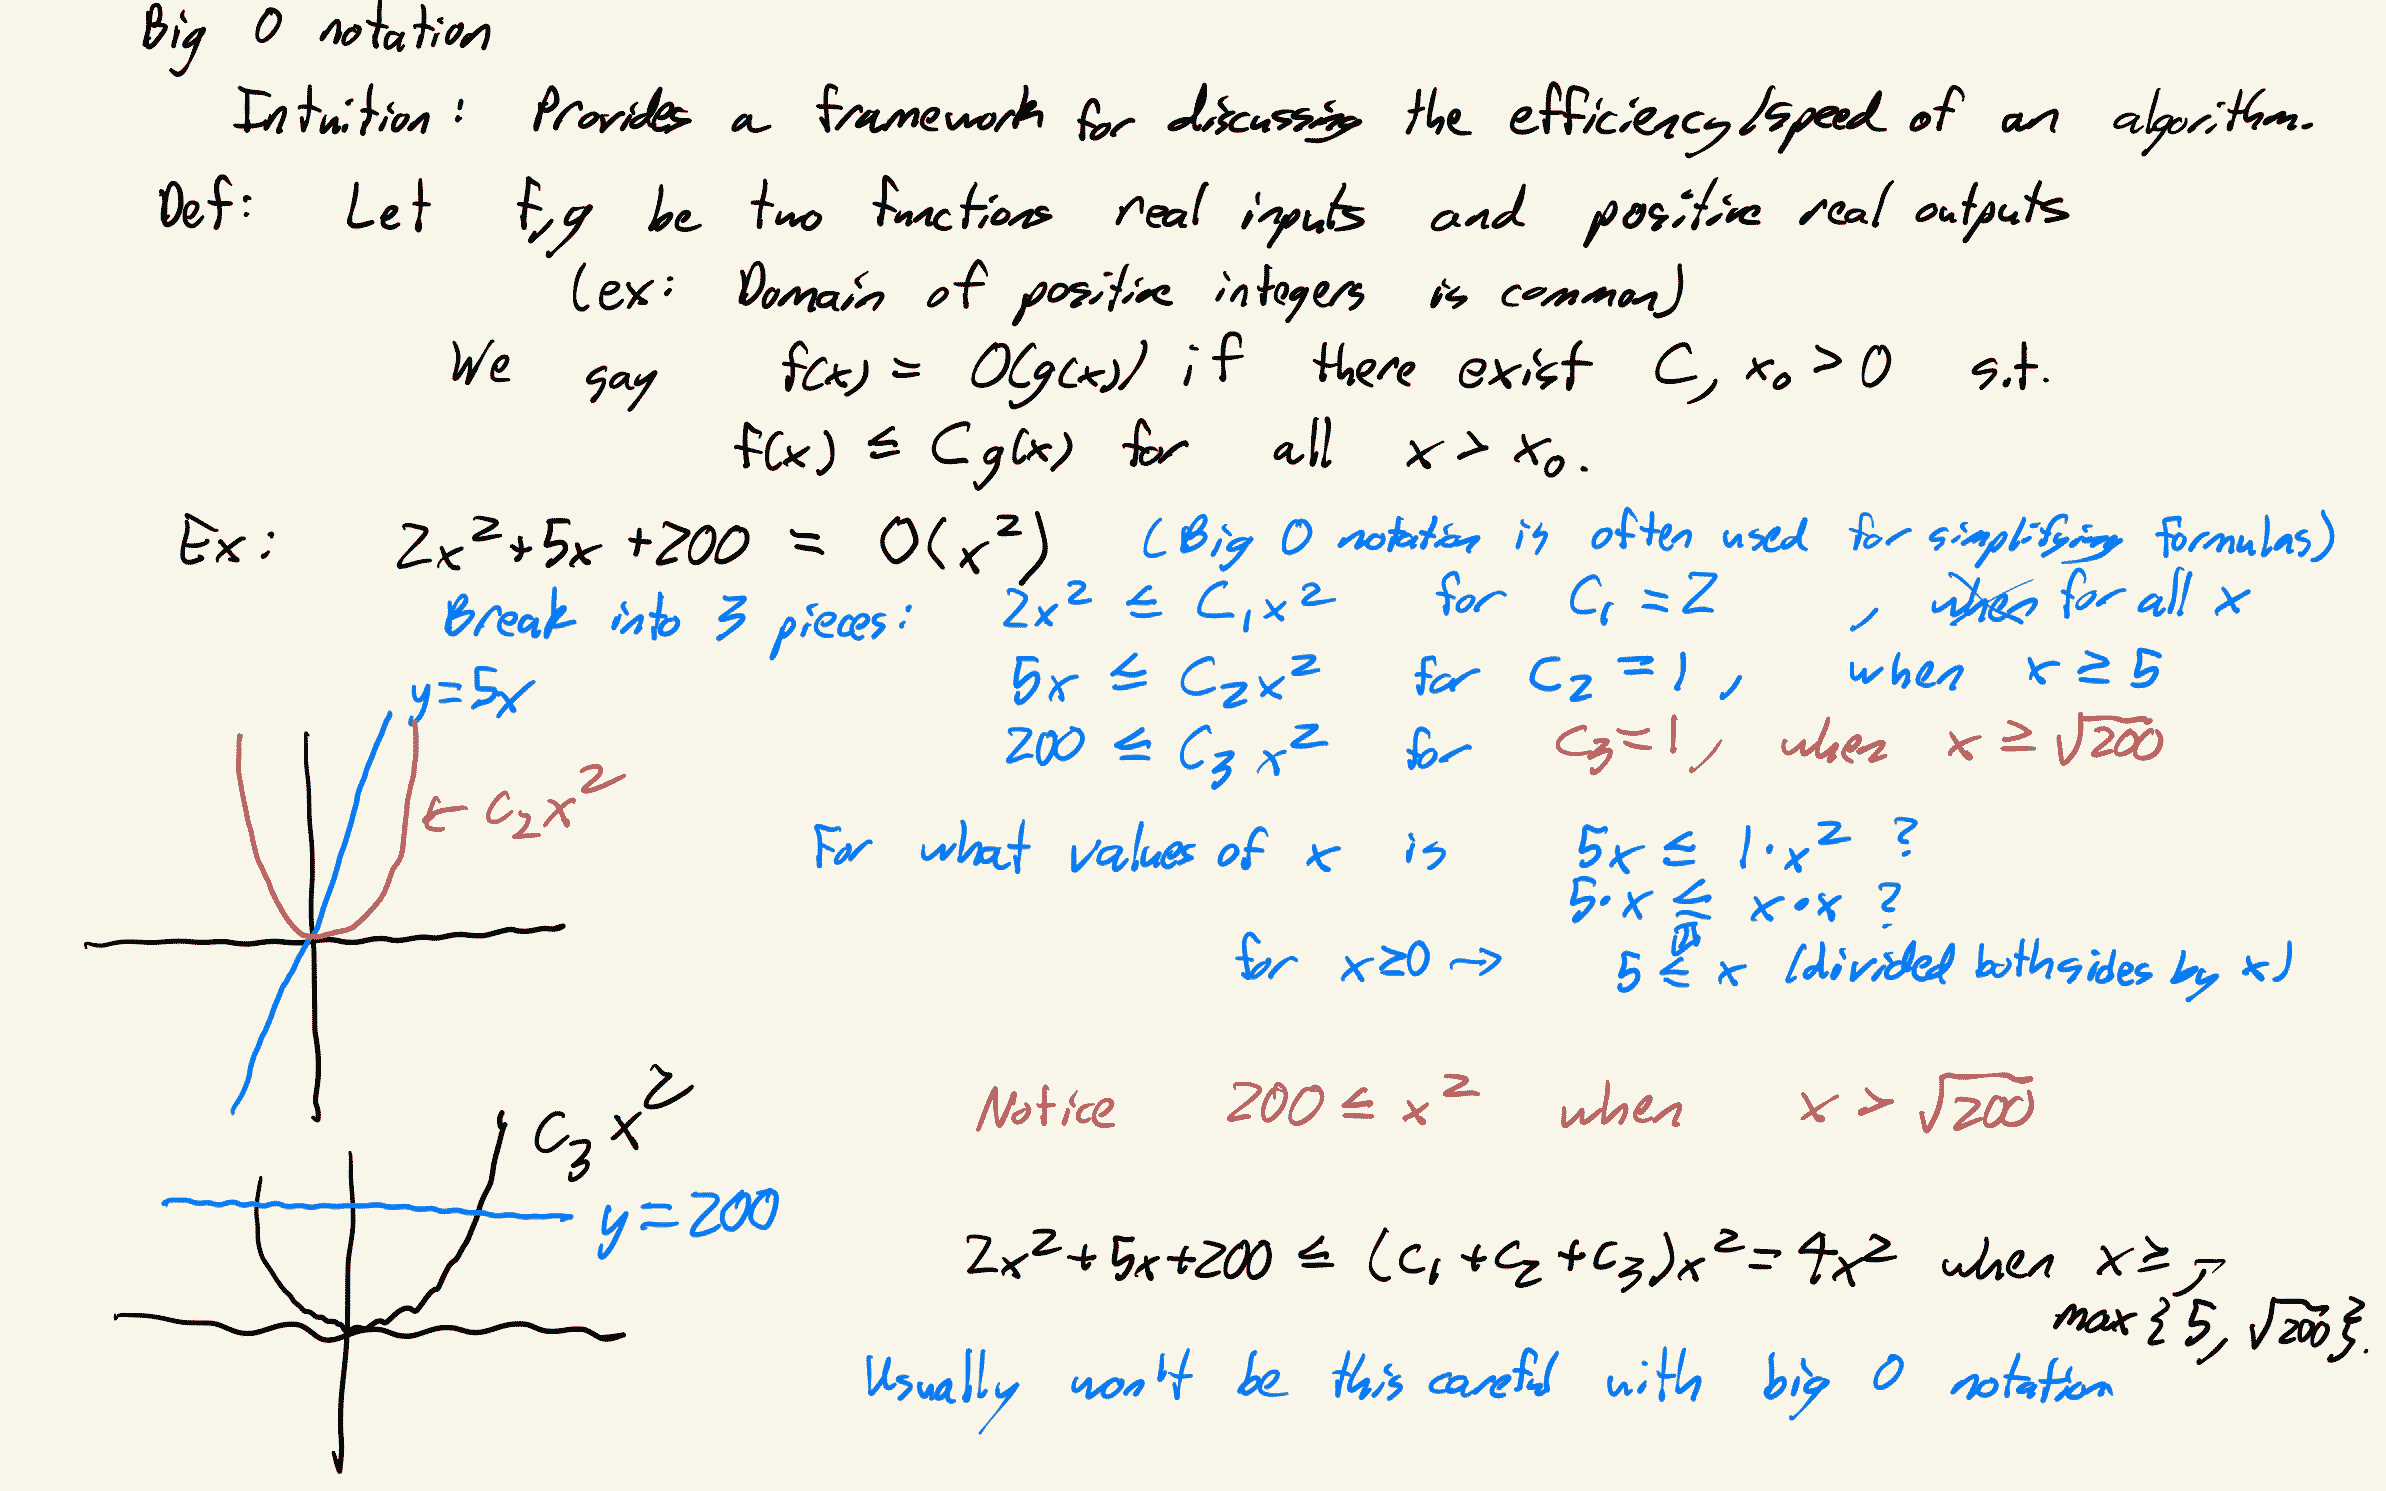 Big O notation
Intuition: Provides a framework for discussing the efficiency/speed of an algorithm.
Def: Let f,g be two functions real inputs and positive real outputs
(ex: Domain of positive integers is common)
We say f(x) = O(g(x)) if there exist C, x₀ > 0 s.t.
f(x) ≤ Cg(x) for all x > x₀.
Ex: 2x²+5x+200 = O(x²) (Big O notation is often used for simplifying formulas)
Break into 3 pieces: 2x² ≤ C₁x² for C₁ = 2 , when for all x
5x ≤ C₂x² for C₂ = 1, when x ≥ 5
200 ≤ C₃x² for C₃=1, when x ≥ √200
y=5x
← C₂x²
For what values of x is 5x ≤ 1·x² ?
5·x ≤ x·x ?
for x≥0 → 5 ≤ x (divided both sides by x)
Notice 200 ≤ x² when x > √200
C₃x²
y=200
2x²+5x+200 ≤ (C₁+C₂+C₃)x²=4x² when x ≥
max{5, √200}.
Usually won't be this careful with big O notation